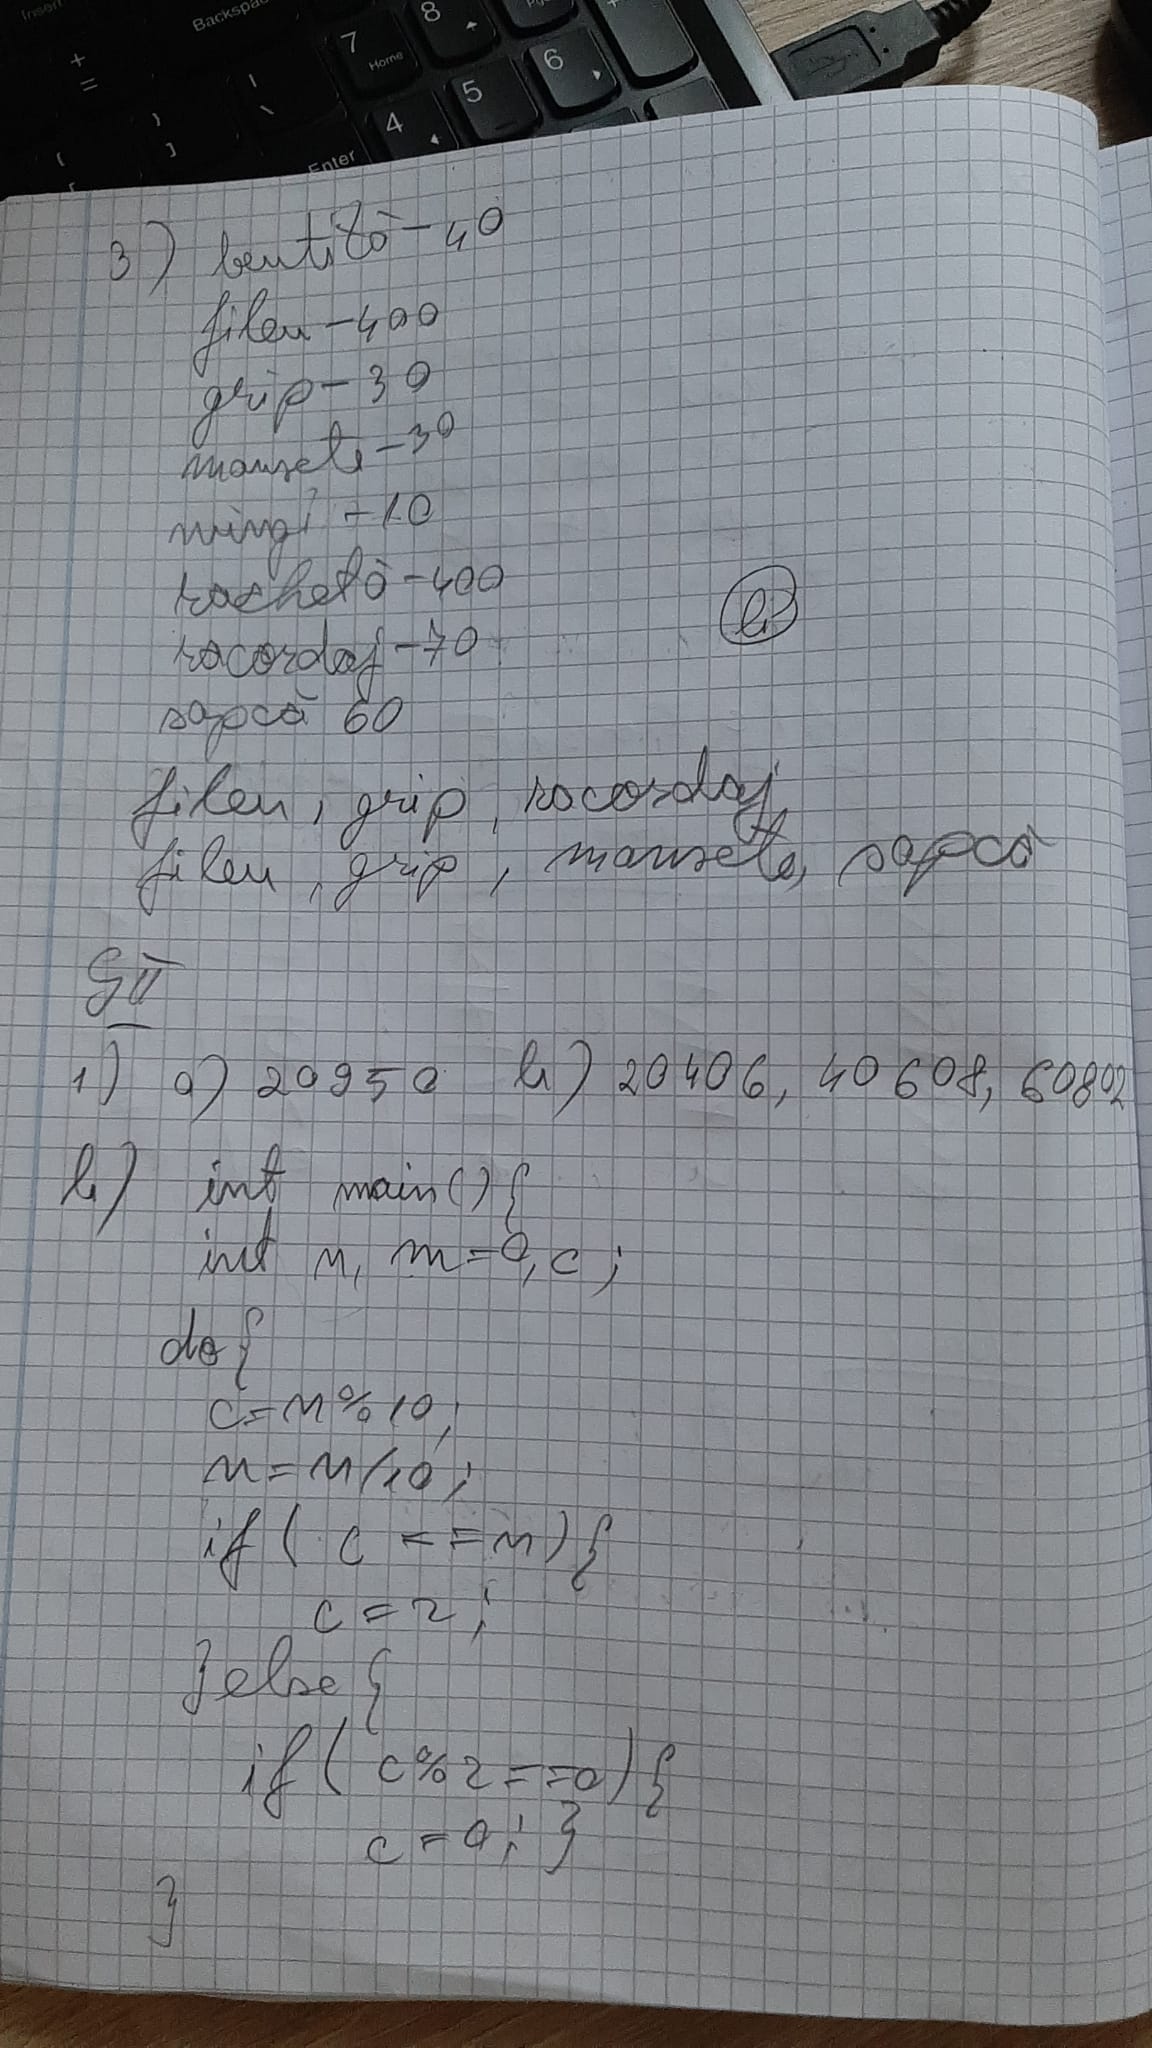 Insert
Backspace
+
=
}
]
{
[
|
\
Enter
7
Home
8
4
5
6
3) bentiță - 40
fileu - 400
grip - 30
mansete - 30
mingi - 10
rachetă - 400
racordaj - 70
sapcă 60
b
fileu, grip, racordaj
fileu, grip, mansete, sapcă
SII
1) a) 20950 b) 20406, 40608, 60802
b) int main() {
int n, m=0, c;
do {
c=n%10;
n=n/10;
if( c ==n) {
c=2;
}else {
if( c%2==0) {
c=0; }
}